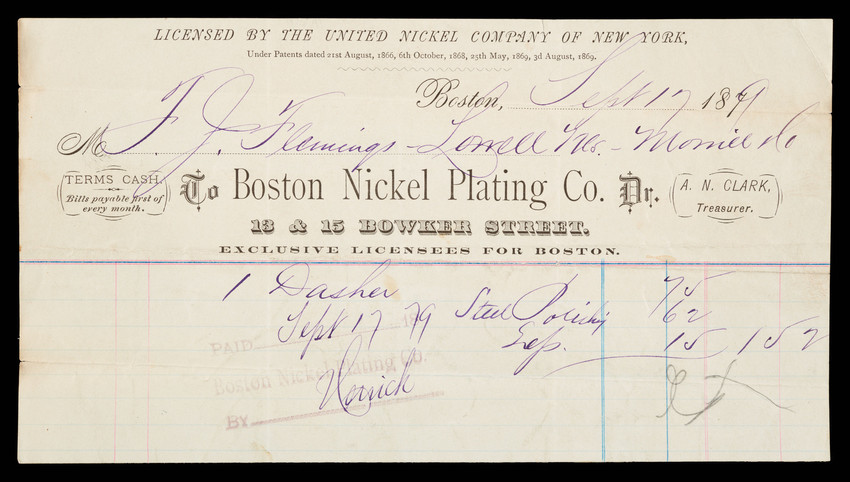 LICENSED BY THE UNITED NICKEL COMPANY OF NEW YORK,
Under Patents dated 21st August, 1866, 6th October, 1868, 25th May, 1869, 3d August, 1869.
Boston, Sept 17 1879
M F. J. Flemings - Lowell - Morrill
TERMS CASH.
Bills payable first of
every month.
To Boston Nickel Plating Co. Dr.
A. N. CLARK,
Treasurer.
13 & 15 BOWKER STREET.
EXCLUSIVE LICENSEES FOR BOSTON.
1 Dasher 75
Steel 62
Sept 17 79 18
Exp. 15 1 52
PAID
Boston Nickel Plating Co.
BY